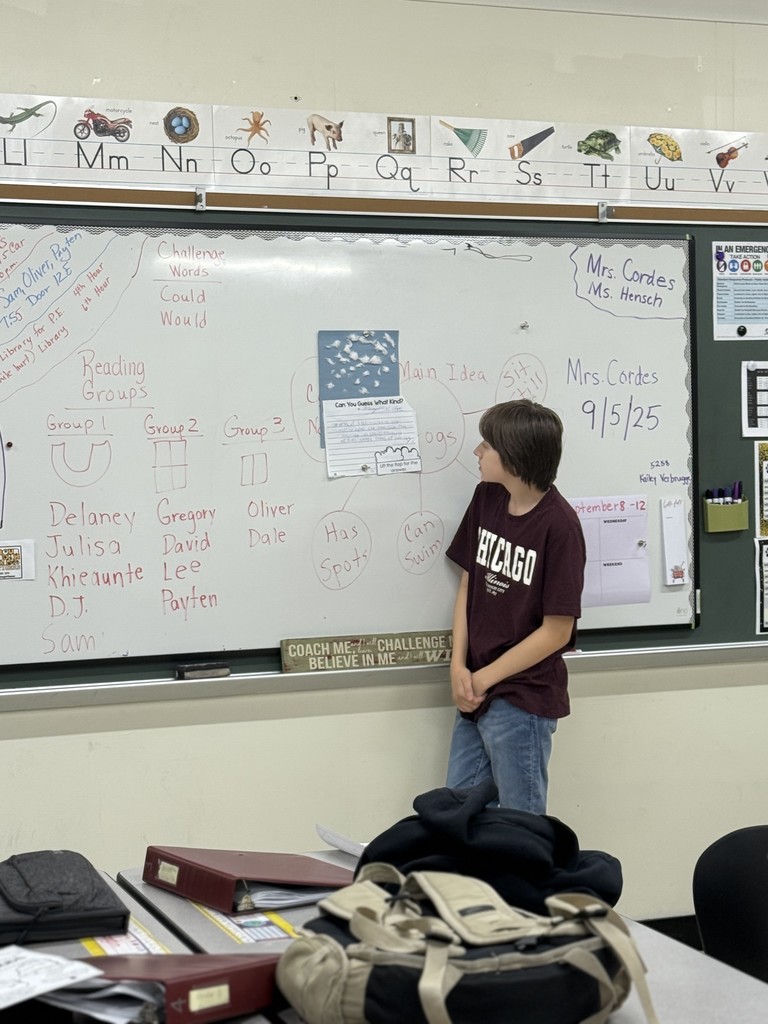 motorcycle
nest
octopus
pig
queen
rake
saw
turtle
umbrella
violin
Ll Mm Nn Oo Pp Qq Rr Ss Tt Uu Vv
Sam, Oliver, Payten
7:55 Door 12E
4th Hour
6th Hour
Library for P.E.
Library
Challenge
Words
Could
Would
Mrs. Cordes
Ms. Hensch
IN AN EMERGENCY
TAKE ACTION
Reading
Groups
Group 1
Delaney
Julisa
Khieaunte
D.J.
Sam
Group 2
Gregory
David
Lee
Payten
Group 3
Oliver
Dale
Main Idea
Can You Guess What Kind?
Lift the flap for the
answer
ogs
Has
Spots
Can
Swim
Mrs. Cordes
9/5/25
5288
Kelley Verbrugge
ptember 8-12
WEDNESDAY
WEEKEND
CHICAGO
Illinois
COACH ME and I will learn CHALLENGE
BELIEVE IN ME and I will WI